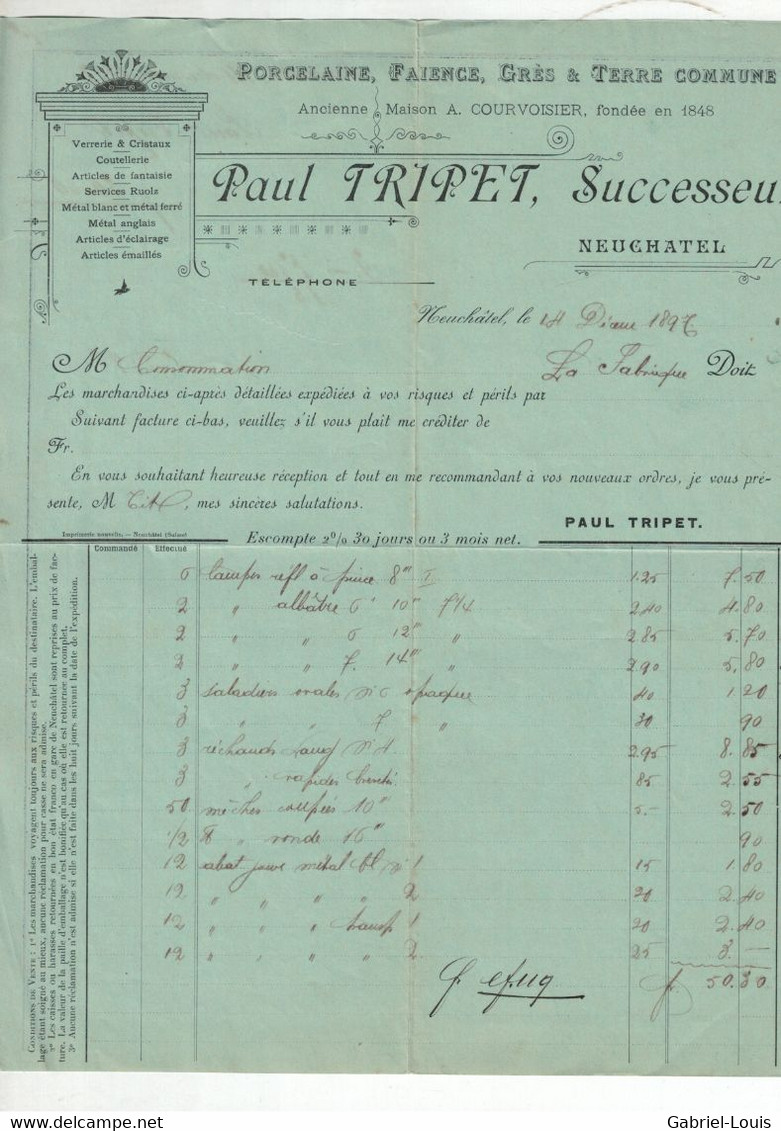 PORCELAINE, FAIENCE, GRÈS & TERRE COMMUNE
Ancienne Maison A. COURVOISIER, fondée en 1848
Verrerie & Cristaux
Coutellerie
Articles de fantaisie
Services Ruolz
Métal blanc et métal ferré
Métal anglais
Articles d'éclairage
Articles émaillés
Paul TRIPET, Successeu
NEUCHATEL
TÉLÉPHONE
Neuchâtel, le 14 1897
M Consommation La Fabrique Doit
Les marchandises ci-après détaillées expédiées à vos risques et périls par
Suivant facture ci-bas, veuillez s'il vous plait me créditer de
Fr.
En vous souhaitant heureuse réception et tout en me recommandant à vos nouveaux ordres, je vous pré-
sente, M , mes sincères salutations.
PAUL TRIPET.
Imprimerie nouvelle. — Neuchâtel (Suisse)
Escompte 2% 30 jours ou 3 mois net.
Commandé Effectué
6 lampes réfl à pince 8''' 1.25 7.50
2 " albâtre 6 10''' 7/4 2.40 4.80
2 " " 6 12''' " 2.85 5.70
2 " " 7. 14''' " 2.90 5.80
3 saladiers ovales No 6 opaque 40 1.20
3 " " 7 " 30 90
3 réchauds No 4 2.95 8.85
3 " rapides 85 2.55
50 mèches coupées 10''' 5.- 2.50
1/2 " ronde 16''' 90
12 abat jour métal bl No 1 15 1.80
12 " " " " 2 20 2.40
12 " " " transp 1 20 2.40
12 " " " " 2 25 3.—
f. 50.30
CONDITIONS DE VENTE : 1º Les marchandises voyagent toujours aux risques et périls du destinataire. L'embal-
lage étant soigné au mieux, aucune réclamation pour casse ne sera admise.
2º Les caisses ou harasses retournées en bon état franco en gare de Neuchâtel sont reprises au prix de fac-
ture. La valeur de la paille d'emballage n'est bonifiée qu'au cas où elle est retournée au complet.
3º Aucune réclamation n'est admise si elle n'est faite dans les huit jours suivant la date de l'expédition.
delcampe.net
Gabriel-Louis